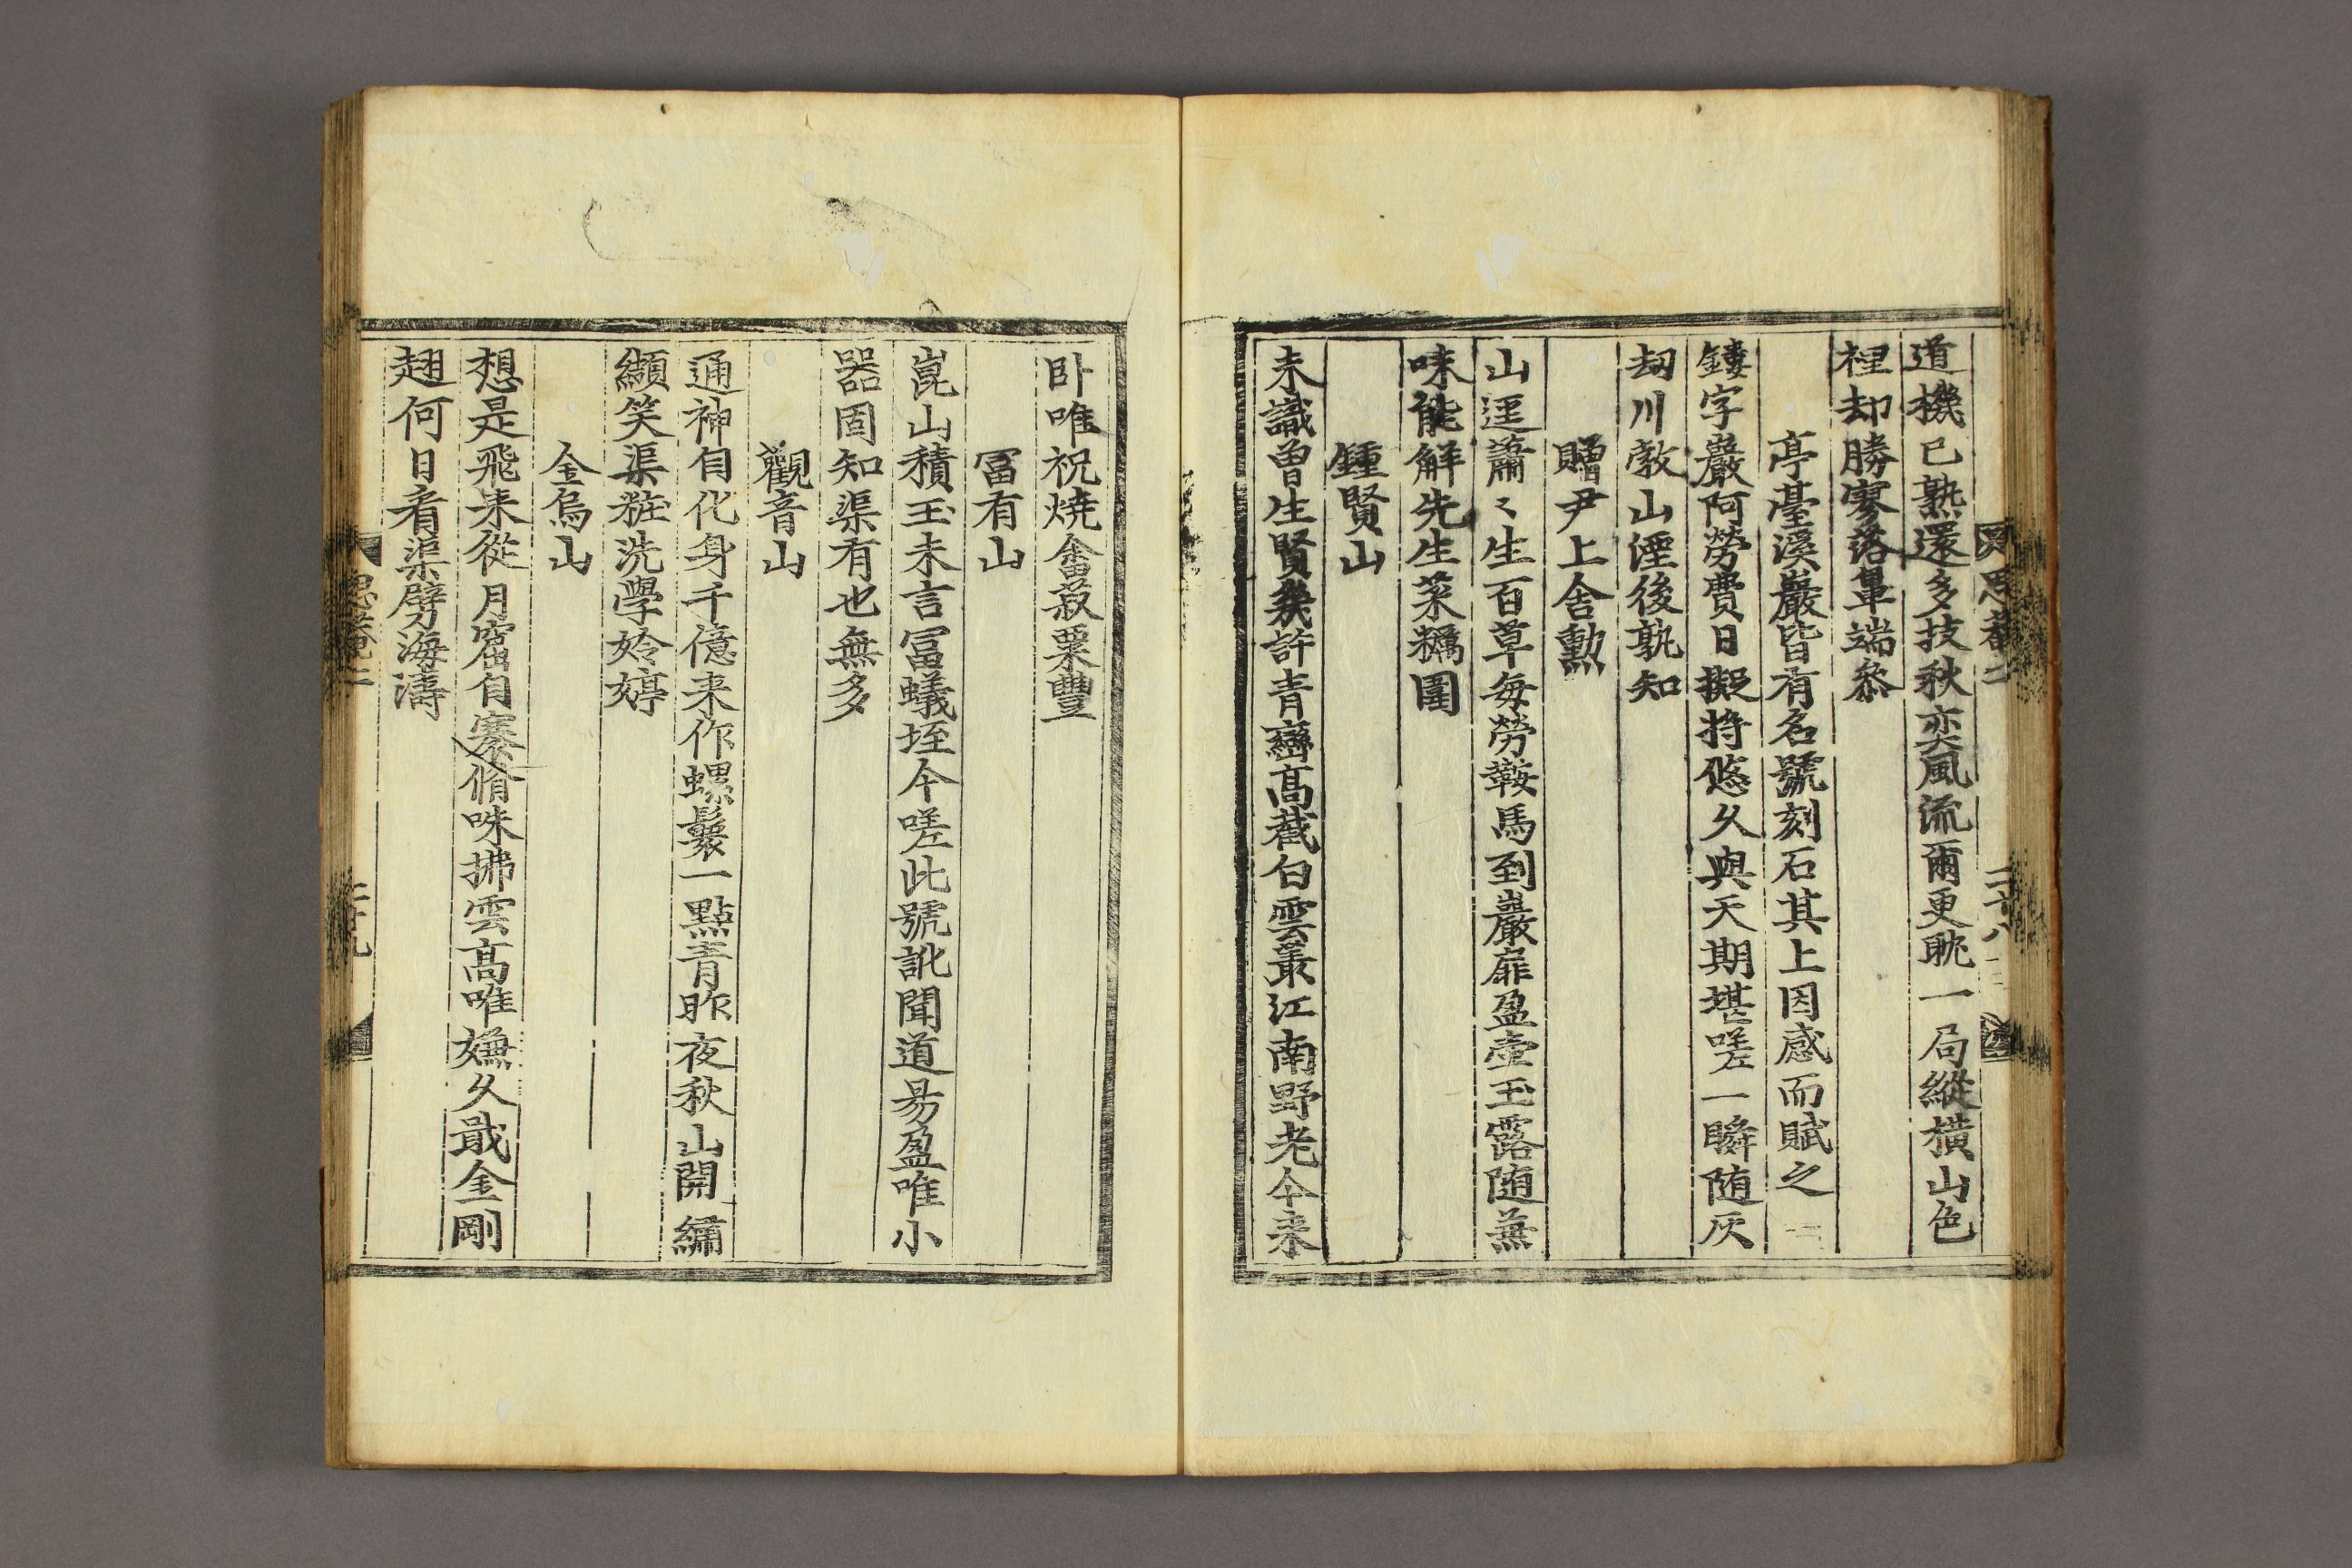 道機已熟還多技秋奕風流爾更眈一局縱橫山色
裡却勝寥落暈端叅
亭臺溪巖皆有名號刻石其上因感而賦之
鏤字巖阿勞費日擬將悠久與天期堪嗟一瞬随灰
刼川敦山湮後孰知
贈尹上舍勲
山逕蕭〻生百草每勞鞍馬到巖扉盈壺玉露随蕪
味能解先生菜糲圍
鍾賢山
未識曾生賢幾許青巒高截白雲叢江南野老今来
卧唯祝焼畬菽粟豐
冨有山
崑山積玉未言冨蟻垤今嗟此號訛聞道易盈唯小
器固知渠有也無多
觀音山
通神自化身千億来作螺鬟一點青昨夜秋山開繡
纈笑渠粧洗學妗婷
金烏山
想是飛来從月窟自褰脩咮拂雲高唯嫌久戢金剛
翅何日看渠劈海濤